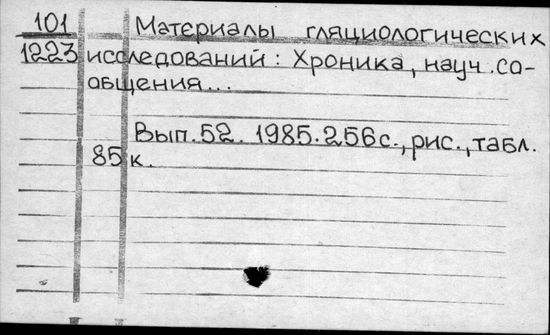 101 Материалы гляциологических
1223 исследований: Хроника, науч. со-
общения...
Вып. 52. 1985. 256 с., рис., табл.
85 к.